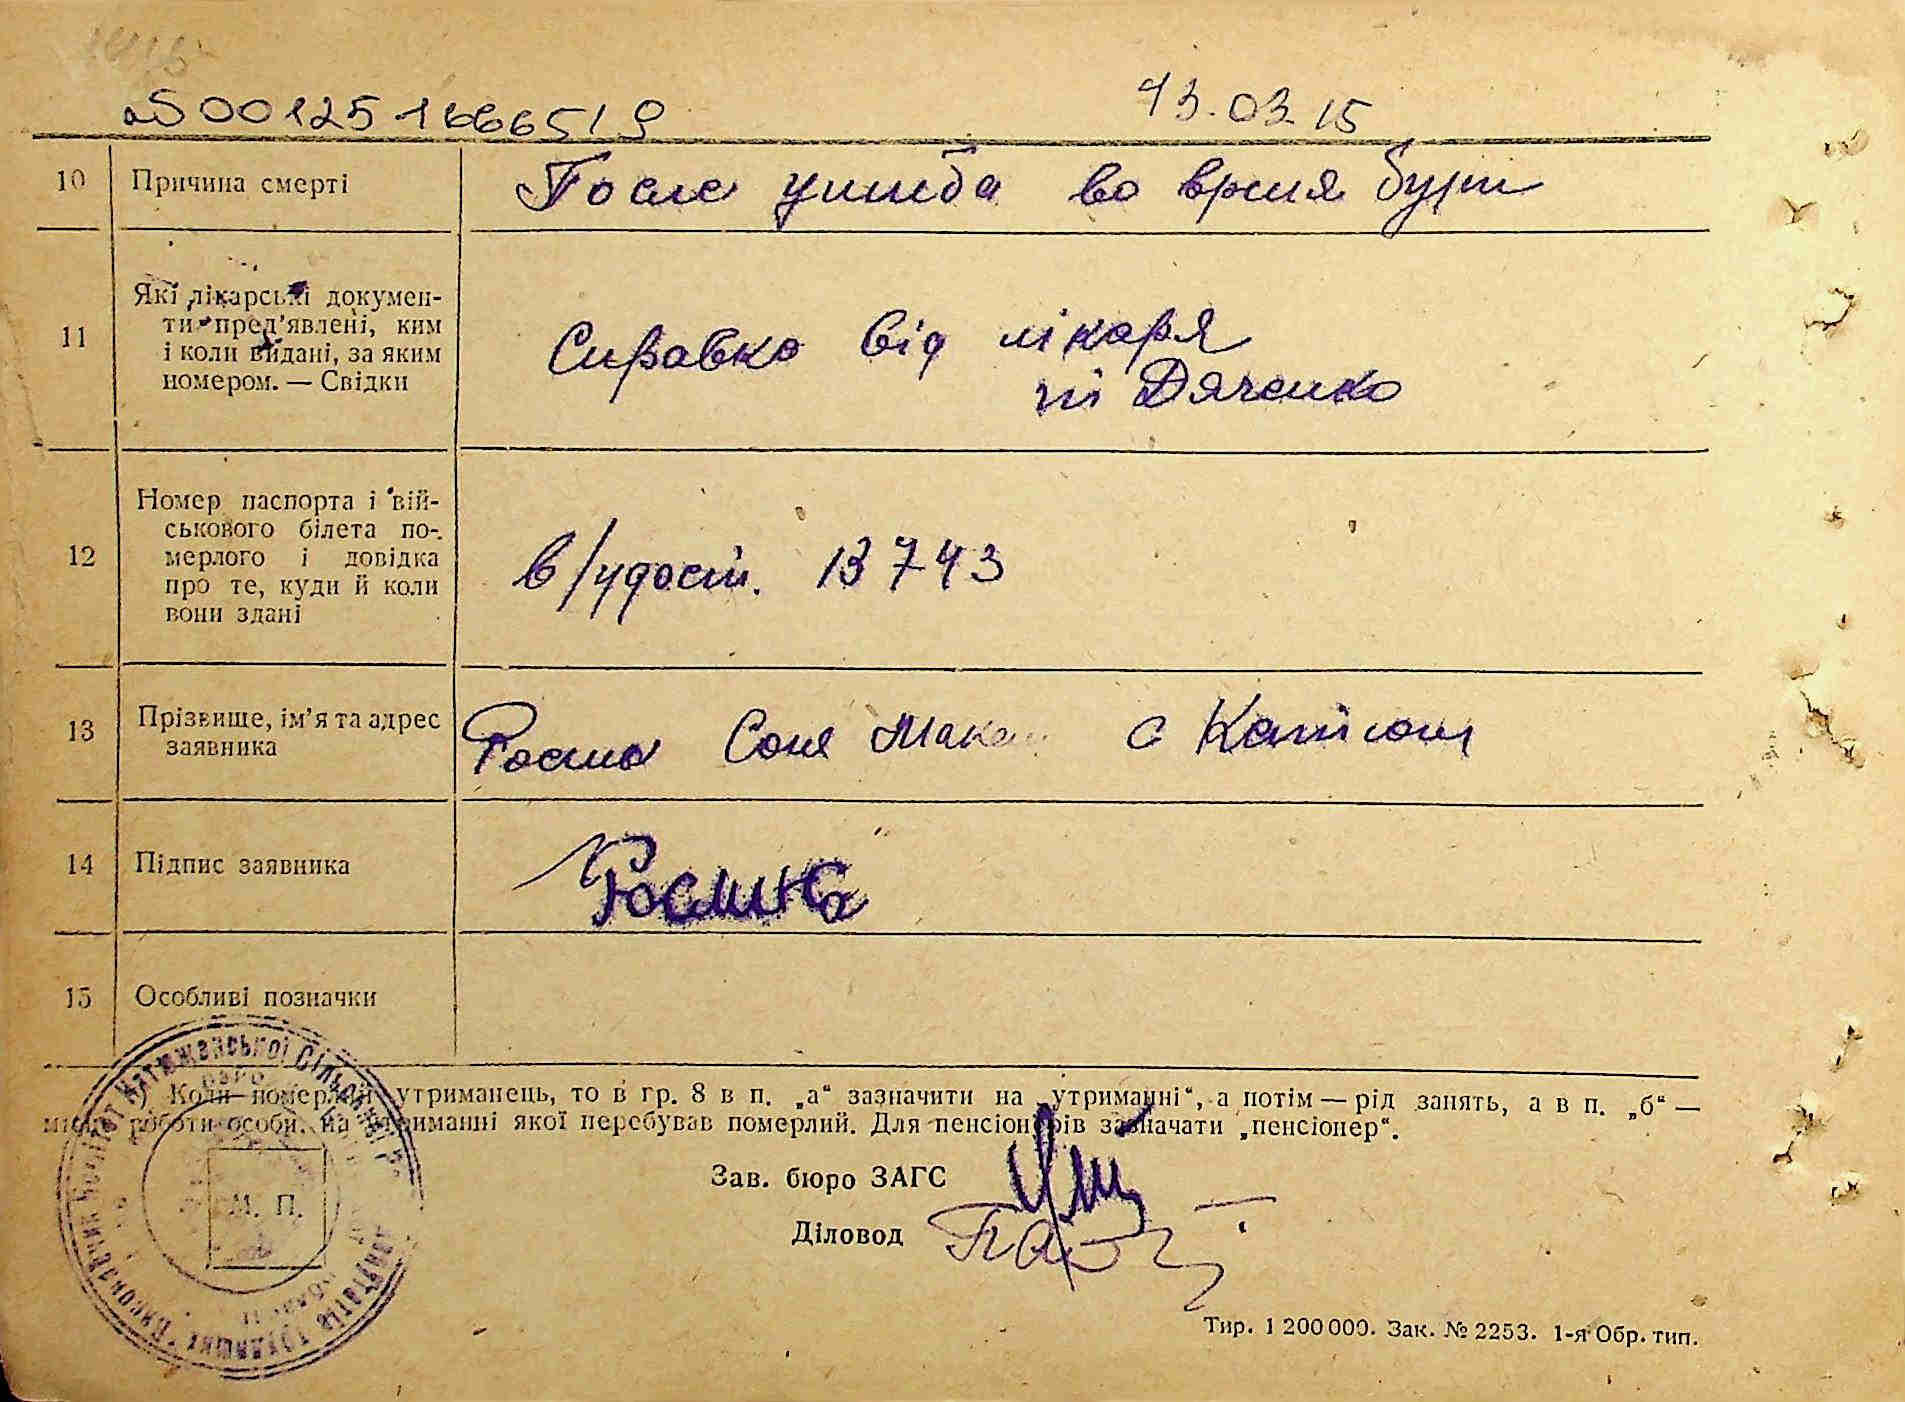 S00125166651 9
13.03.15
10 Причина смерті После ушиба во время бури
11 Які лікарські докумен-
ти пред’явлені, ким
і коли видані, за яким
номером. — Свідки
Справка від лікаря
Дяченко
12 Номер паспорта і вій-
ськового білета по-
мерлого і довідка
про те, куди й коли
вони здані
в/удост. 13743
13 Прізвище, ім’я та адрес
заявника
Соня с
14 Підпис заявника
15 Особливі позначки
Коли померлий утриманець, то в гр. 8 в п. „а“ зазначити на „утриманні“, а потім — рід занять, а в п. „б“ —
місце роботи особи, на утриманні якої перебував померлий. Для пенсіонерів зазначати „пенсіонер“.
Зав. бюро ЗАГС
Діловод
М. П.
Тир. 1 200 000. Зак. № 2253. 1-я Обр. тип.